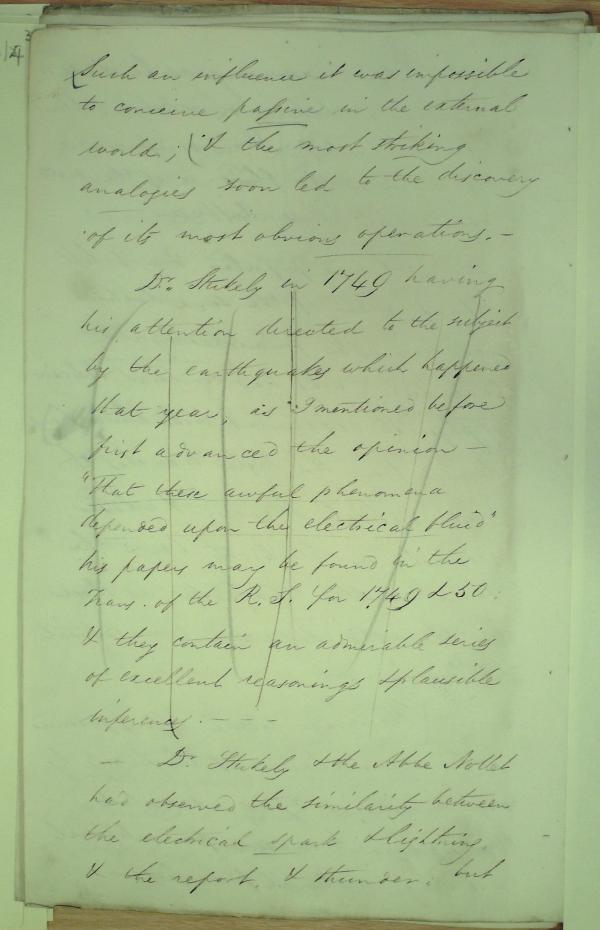 Such an influence it was impossible
to conceive passive in the external
world; & the most striking
analogies soon led to the discovery
of its most obvious operations. -
Dr. Stukely in 1749 having
his attention directed to the subject
by the earthquakes which happened
that year, as I mentioned before
first advanced the opinion -
"That these awful phenomena
depended upon the electrical fluid"
his papers may be found in the
Trans. of the R. S. for 1749 & 50:
& they contain an admirable series
of excellent reasonings & plausible
inferences. - - - -
- Dr. Stukely & the Abbe Nollet
had observed the similarity between
the electrical spark & lightning.
& the report. & thunder: but